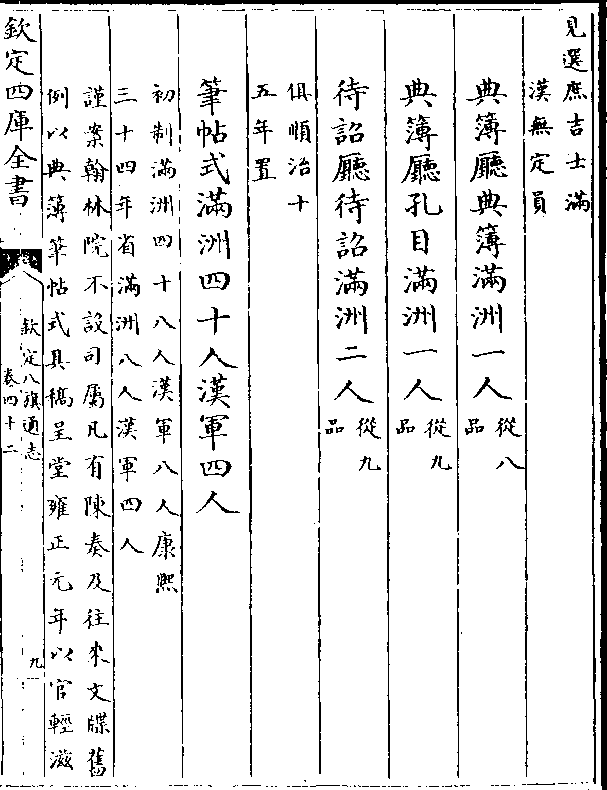 見選庶吉士滿
漢無定員
典簿廳典簿滿洲一人從八
品
典簿廳孔目滿洲一人從九
品
待詔廳待詔滿洲二人從九
品
俱順治十
五年置
筆帖式滿洲四十人漢軍四人
初制滿洲四十八人漢軍八人康熙
三十四年省滿洲八人漢軍四人
謹案翰林院不設司屬凡有陳奏及往來文牒舊
例以典簿筆帖式具稿呈堂雍正元年以官輕滋
欽定四庫全書
欽定八旗通志
卷四十二
九